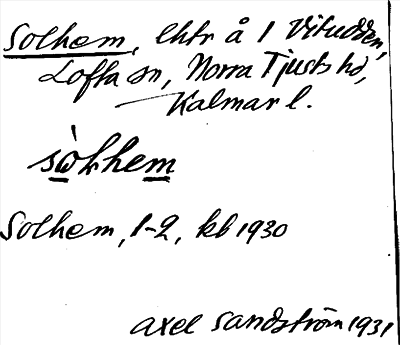 Solhem, lhtr å 1 Vitudden,
Lofta sn, Norra Tjusts hd,
Kalmar l.
sὼl̥hem
Solhem, 1-2, kb 1930
Axel Sandström 1931